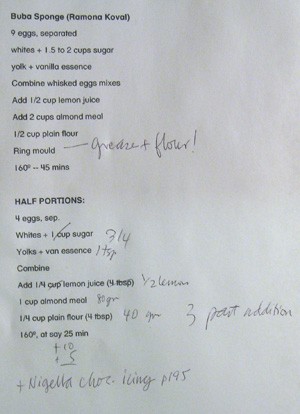 Buba Sponge (Ramona Koval)
9 eggs, separated
whites + 1.5 to 2 cups sugar
yolk + vanilla essence
Combine whisked eggs mixes
Add 1/2 cup lemon juice
Add 2 cups almond meal
1/2 cup plain flour
Ring mould — grease + flour!
160º – 45 mins
HALF PORTIONS:
4 eggs, sep.
Whites + 1 cup sugar 3/4
Yolks + van essence 1 tsp
Combine
Add 1/4 cup lemon juice (4 tbsp) 1/2 lemon
1 cup almond meal 80gm
1/4 cup plain flour (4 tbsp) 40 gm 3 part addition
160º, at say 25 min
+10
+ 5
+ Nigella choc. icing p195